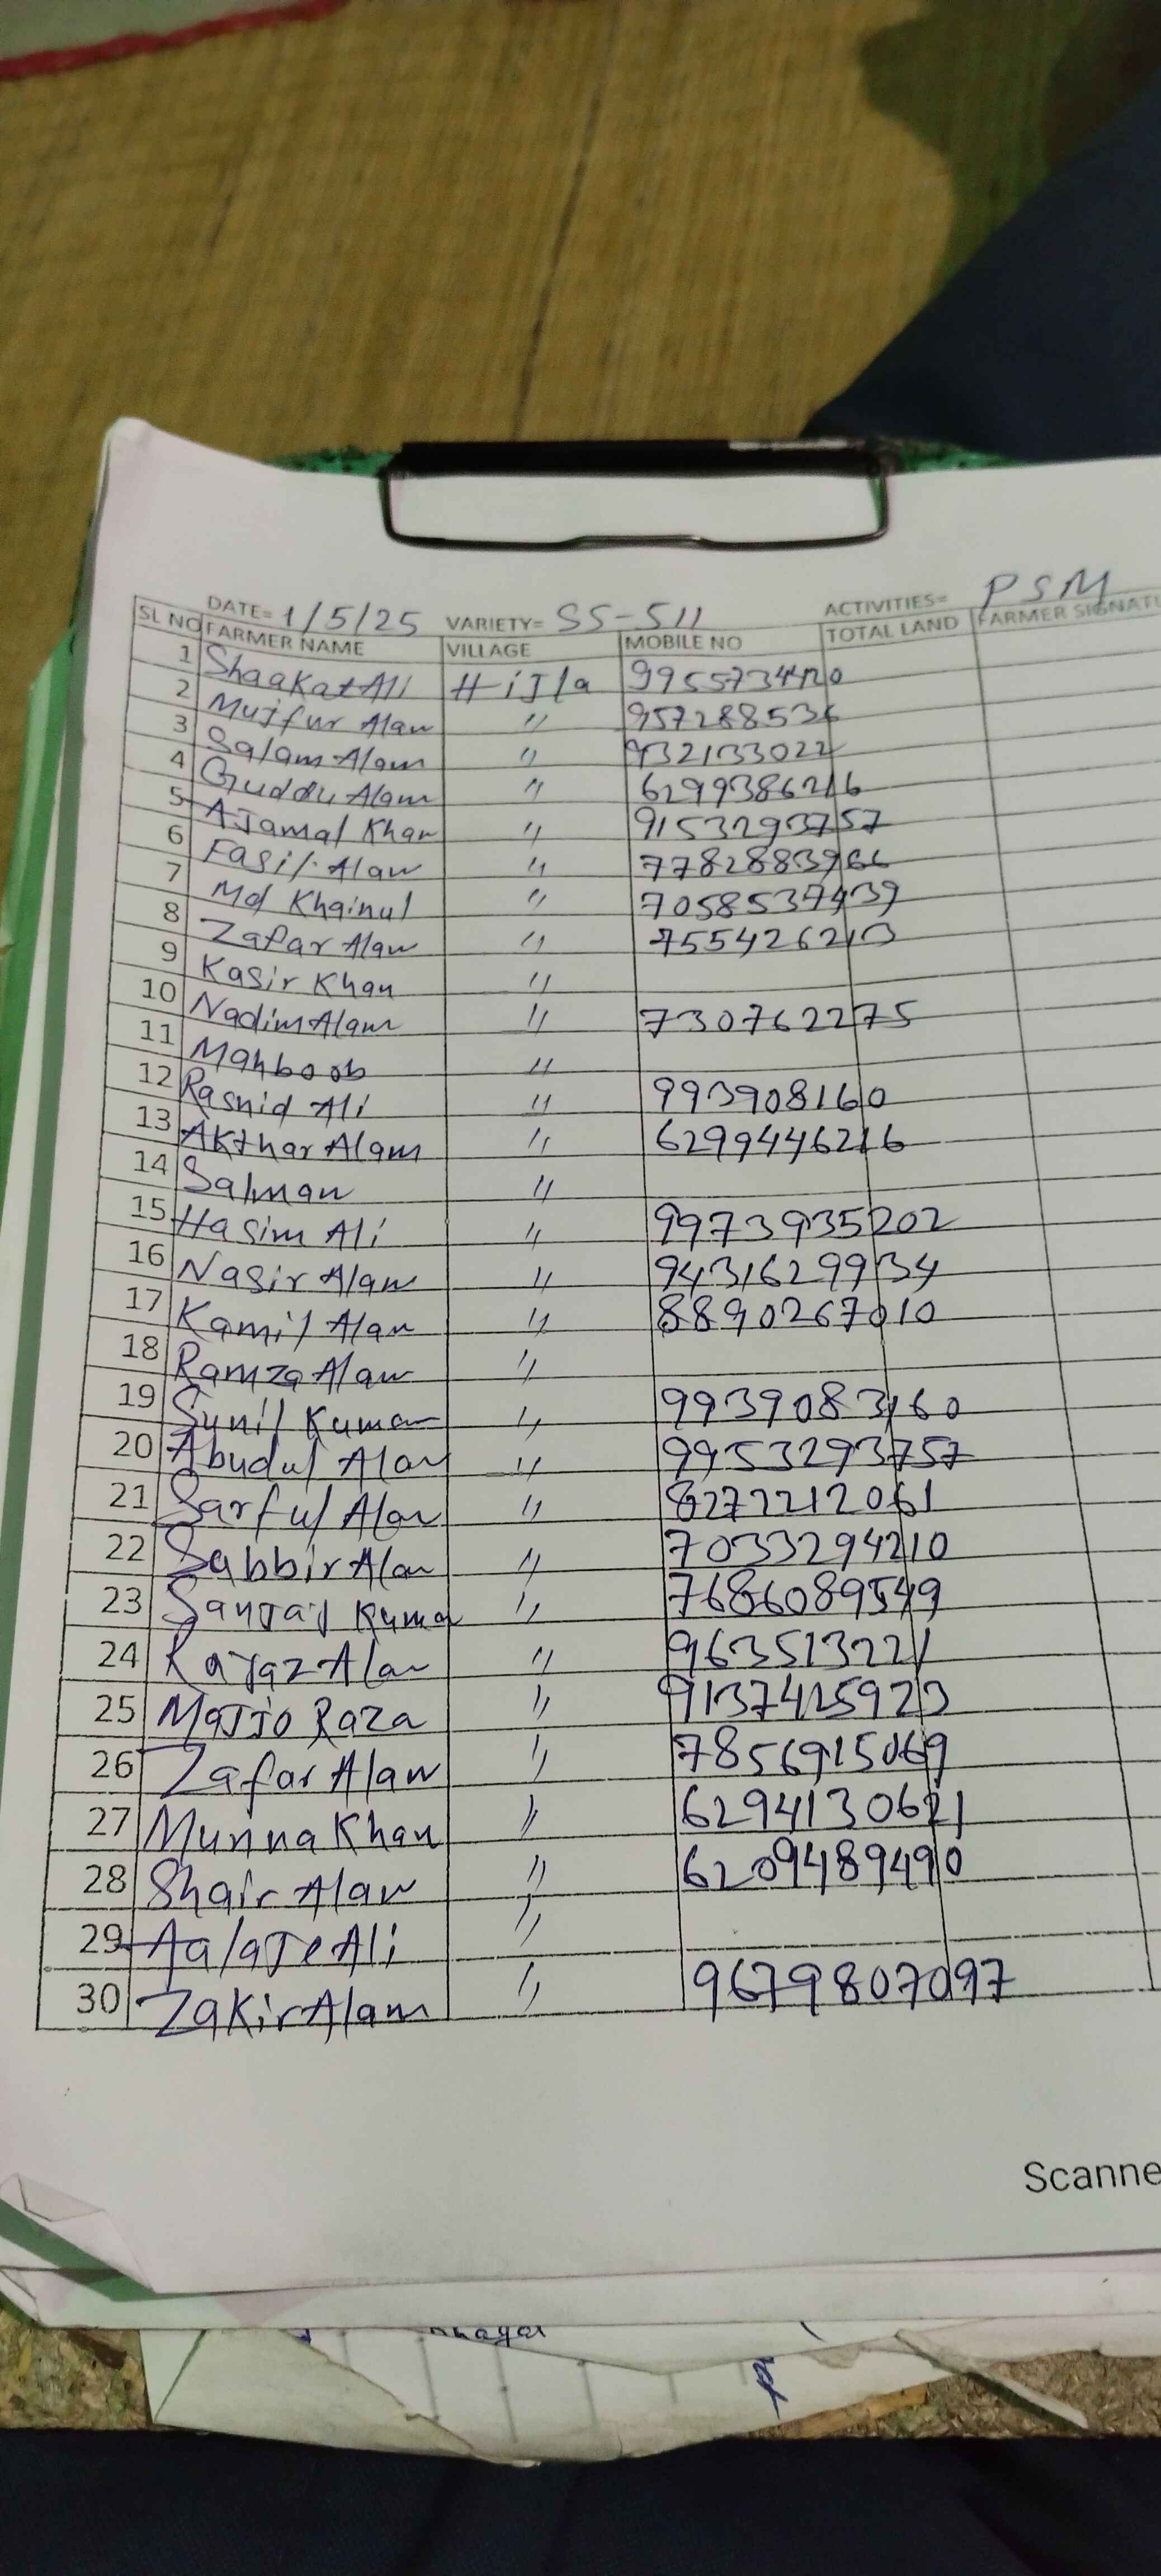 DATE= 1/5/25 VARIETY= SS-511 ACTIVITIES= PSM
SL NO FARMER NAME VILLAGE MOBILE NO TOTAL LAND FARMER SIGNATU
1 Shaakat Ali Hijla 9955734420
2 Mujfur Alam " 957288536
3 Salam Alam " 932133022
4 Guddu Alam " 6299386216
5 AJamal Khan " 9153293757
6 Fasil Alam " 7782883966
7 Md Khainul " 7058537439
8 Zafar Alam " 7554262213
9 Kasir Khan "
10 Nadim Alam " 730762275
11 Mahboob "
12 Rashid Ali " 993908160
13 Akthar Alam " 6299446216
14 Salman "
15 Hasim Ali " 9973935202
16 Nasir Alam " 9431629934
17 Kamil Alam " 8890267010
18 Ramza Alam "
19 Sunil Kumar " 9939083160
20 Abudul Alam " 9953293757
21 Sarful Alam " 8272212061
22 Sabbir Alam " 7033294210
23 Sanjay Kumar " 7686089549
24 Rayaz Alam " 963513221
25 Majjo Raza " 9137425923
26 Zafar Alam " 7856915069
27 Munna Khan " 6294130621
28 Shair Alam " 6209489490
29 AalaJe Ali "
30 Zakir Alam " 9679807097
Scanne